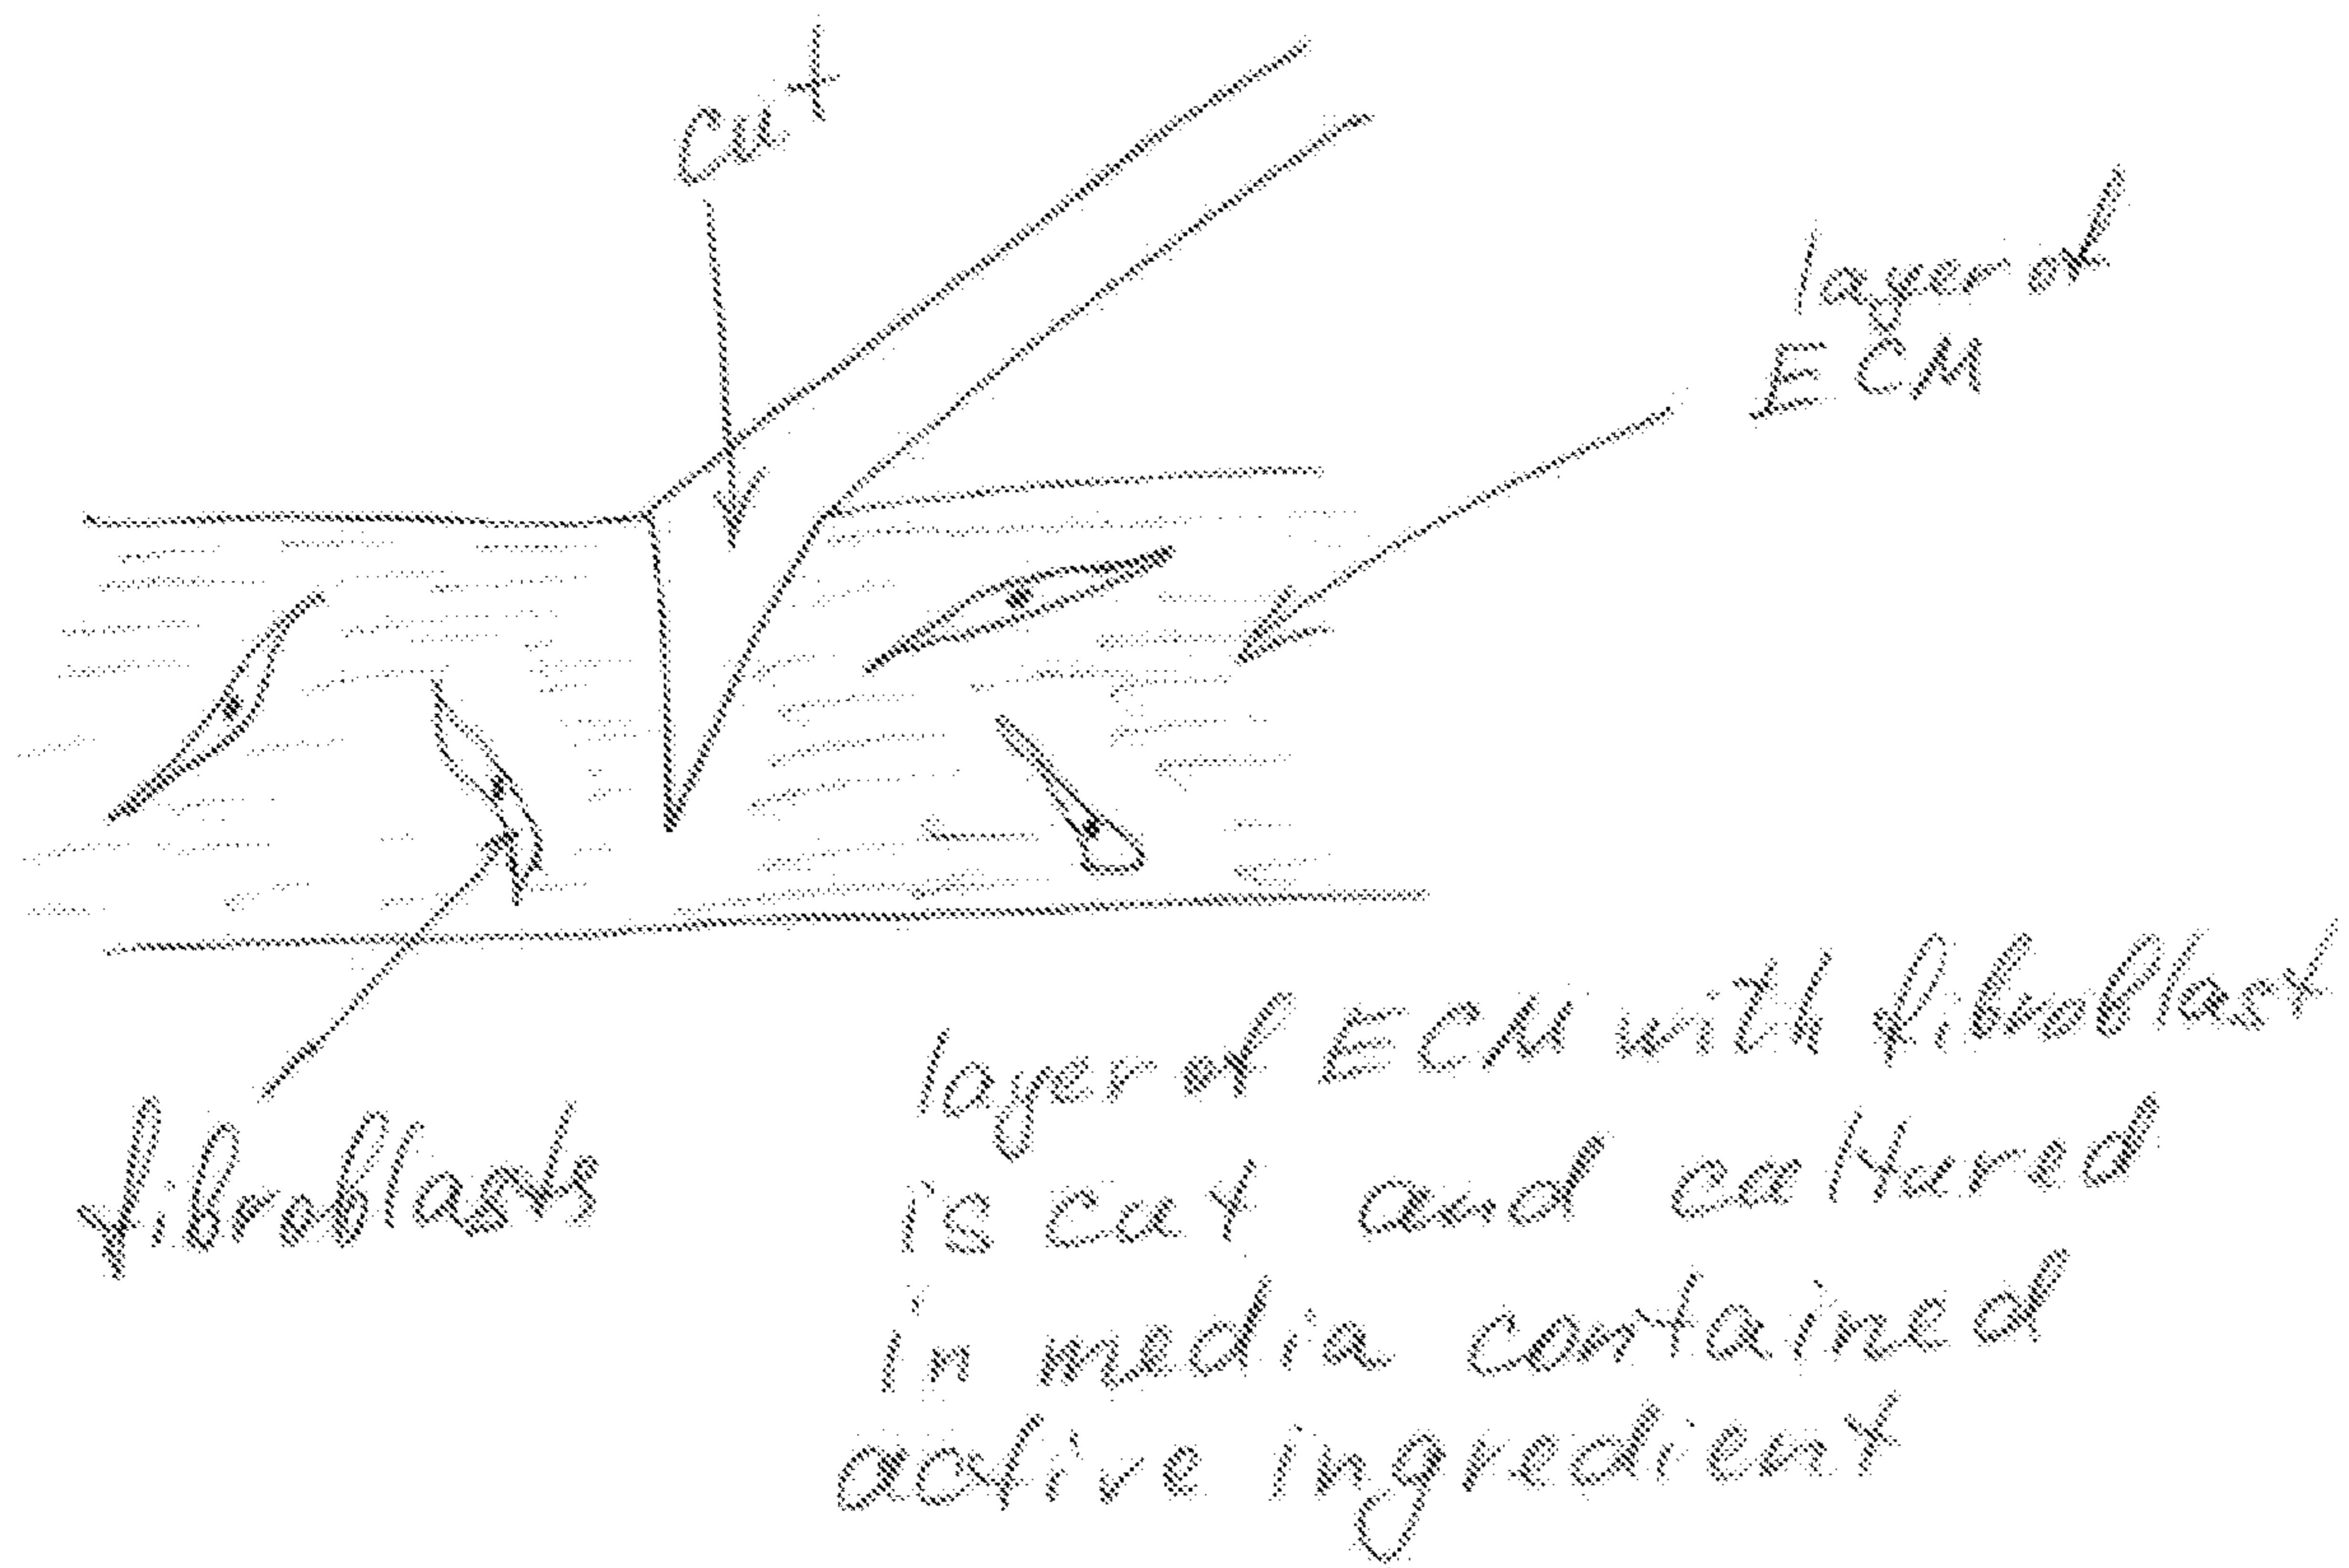 Cut
layer of
ECM
fibroblasts
layer of ECM with fibroblast
is cut and cultured
in media contained
active ingredient